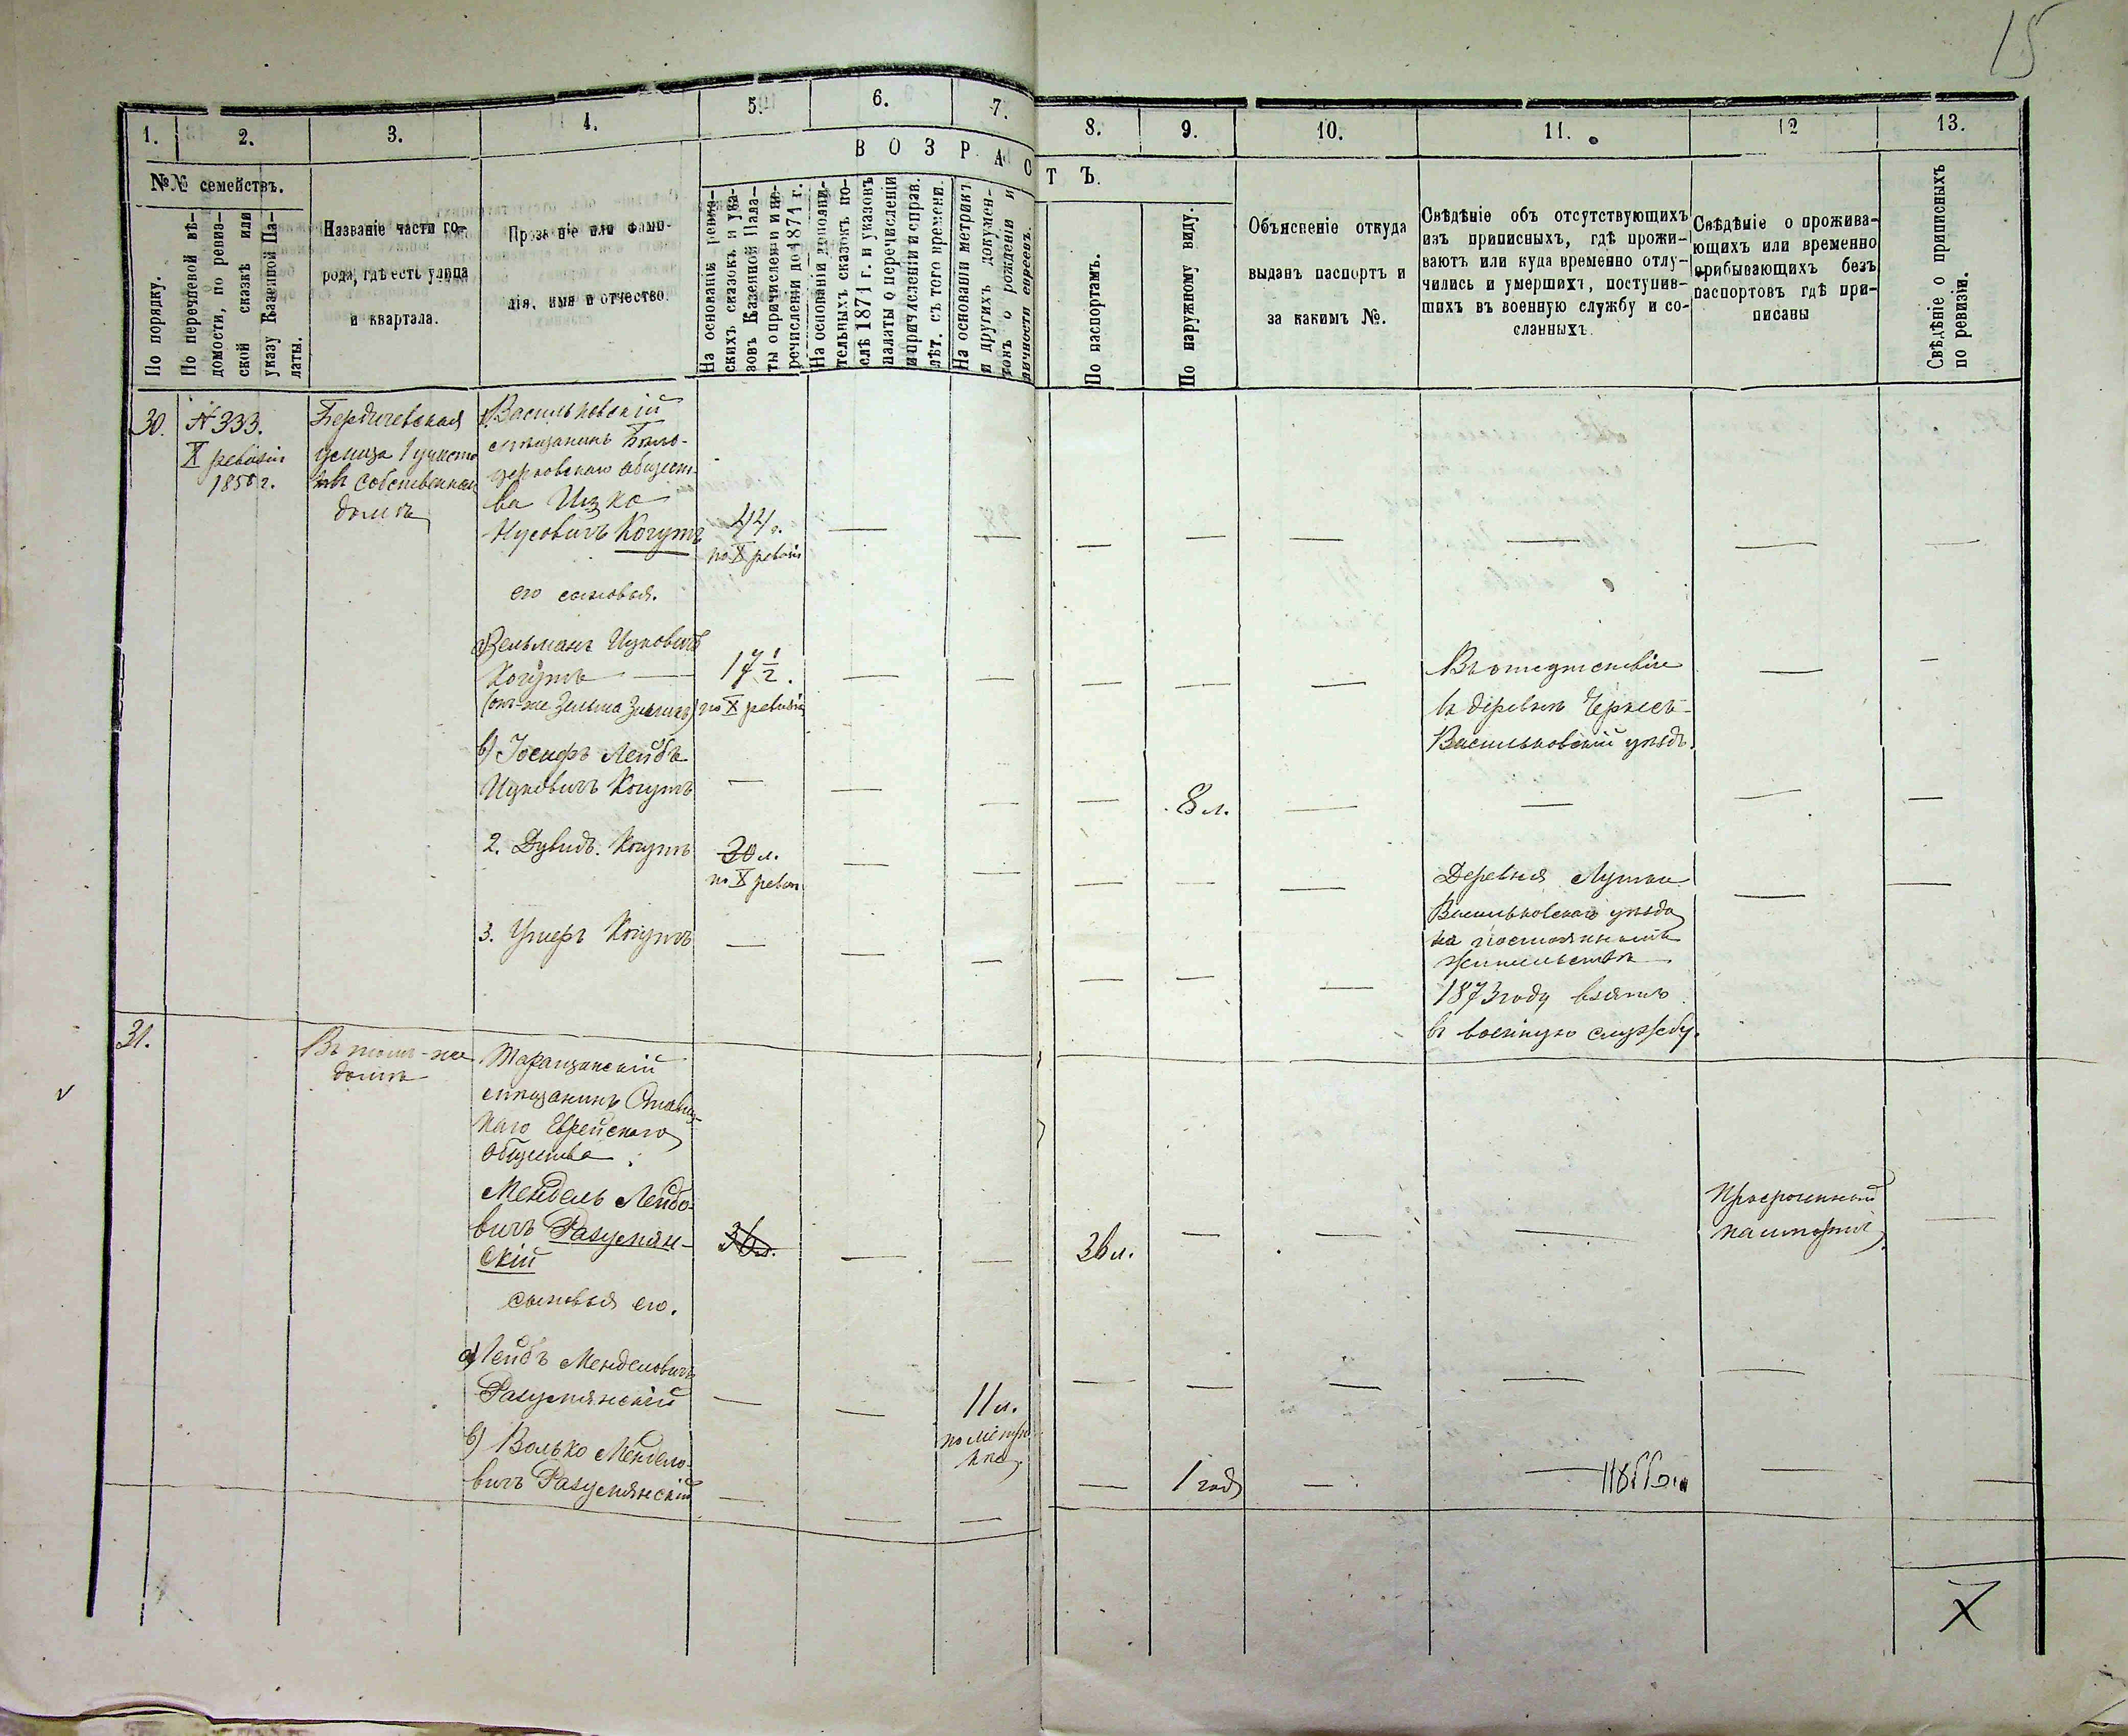 15
1.
2.
3.
4.
5.
6.
7.
8.
9.
10.
11.
12
13.
В О З Р А С Т Ъ.
№№ семействъ.
По порядку.
По перечневой вѣ-
домости, по ревиз-
ской сказкѣ или
указу Казенной Па-
латы.
Названіе части го-
рода, гдѣ есть улица
и квартала.
Прозваніе или фами-
лія, имя и отчество.
На основаніи ревиз-
скихъ сказокъ и ука-
зовъ Казенной Пала-
ты о причисленіи и пе-
речисленіи до 1871 г.
На основаніи дополни-
тельныхъ сказокъ по-
слѣ 1871 г. и указовъ
палаты о перечисленіи
и причисленіи и прав.
лѣт. съ того времени.
На основаніи метрикъ
и другихъ докумен-
товъ о рожденіи и
личности евреевъ.
По паспортамъ.
По наружному виду.
Объясненіе откуда
выданъ паспортъ и
за какимъ №.
Свѣдѣніе объ отсутствующихъ
изъ приписныхъ, гдѣ прожи-
ваютъ или куда временно отлу-
чились и умершихъ, поступив-
шихъ въ военную службу и со-
сланныхъ.
Свѣдѣніе о прожива-
ющихъ или временно
прибывающихъ безъ
паспортовъ гдѣ при-
писаны
Свѣдѣніе о приписныхъ
по ревизіи.
30.
№ 333.
X ревизіи
1858 г.
Бердичевская
улица 1 участ
въ собственном
домѣ
Васильковскій
мѣщанинъ Бѣло-
церковскаго общест
ва Ицко
Нусовичъ Когутъ
44 г.
по X ревизіи
его сыновья.
а) Зельманъ Ицковичъ
Когутъ
(онъ-же Зельма Зисель)
17 ½.
по X ревизіи
Въ отсутствіи
въ деревнѣ Черкесъ
Васильковскій уѣздъ.
б) Іосифъ Лейба
Ицковичъ Когутъ
8 л.
2. Дувидъ Когутъ
30 л.
по X ревиз
Деревня
Васильковскаго уѣзда
на постоянномъ
жительствѣ
3. Умеръ Когутъ
1873 году взятъ
въ военную службу.
31.
Въ томъ-же
домѣ
Таращанскій
мѣщанинъ Ставищ-
каго Еврейскаго
общества
Мендель Лейбо-
вичъ Разумян-
скій
36 л.
36 л.
Просроченный
паспортъ
сыновья его.
а) Лейбъ Менделовичъ
Разумянскій
11 л.
по метри
кѣ
б) Волько Менделе-
вичъ Разумянскій
1 годъ
X